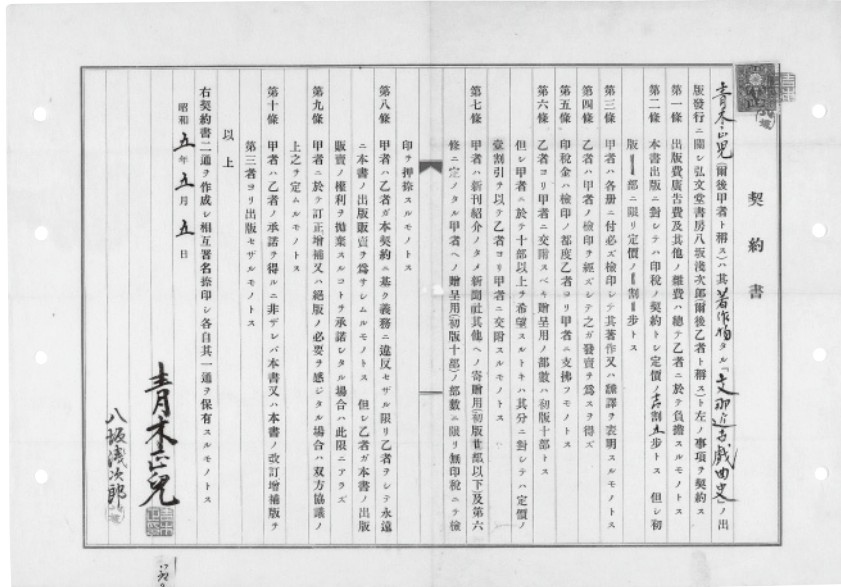 契約書
青木正兒(爾後甲者ト稱ス)ハ其著作物タル「支那近古戲曲史」ノ出
版發行ニ關シ弘文堂書房八坂淺次郎(爾後乙者ト稱ス)ト左ノ事項ヲ契約ス
第一條 出版費廣告費及其他ノ雜費ハ總テ乙者ニ於テ負擔スルモノトス
第二條 本書出版ニ對シテハ印稅ノ契約トシ定價ノ壱割五步トス 但シ初
版 部ニ限リ定價ノ 割 步トス
第三條 甲者ハ各册ニ付必ズ檢印シテ其著作又ハ飜譯ヲ表明スルモノトス
第四條 乙者ハ甲者ノ檢印ヲ經ズシテ之ガ發賣ヲ爲スヲ得ズ
第五條 印稅金ハ檢印ノ都度乙者ヨリ甲者ニ支拂フモノトス
第六條 乙者ヨリ甲者ニ交附スベキ贈呈用ノ部數ハ初版十部トス
但シ甲者ニ於テ十部以上ヲ希望スルトキハ其分ニ對シテハ定價ノ
壹割引ヲ以テ乙者ヨリ甲者ニ交附スルモノトス
第七條 甲者ハ新刊紹介ノタメ新聞社其他ヘノ寄贈用(初版廿部以下)及第六
條ニ定メタル甲者ヘノ贈呈用(初版十部)ノ部數ニ限リ無印稅ニテ檢
印ヲ押捺スルモノトス
第八條 甲者ハ乙者ガ本契約ニ基ク義務ニ違反セザル限リ乙者ヲシテ永遠
ニ本書ノ出版販賣ヲ爲サシムルモノトス 但シ乙者ガ本書ノ出版
販賣ノ權利ヲ拋棄スルコトヲ承諾シタル場合ハ此限ニアラズ
第九條 甲者ニ於テ訂正增補又ハ絕版ノ必要ヲ感ジタル場合ハ双方協議ノ
上之ヲ定ムルモノトス
第十條 甲者ハ乙者ノ承諾ヲ得ルニ非ザレバ本書又ハ本書ノ改訂增補版ヲ
第三者ヨリ出版セザルモノトス
以上
右契約書二通ヲ作成シ相互署名捺印シ各自其一通ヲ保有スルモノトス
昭和五年五月五日
青木正兒
八坂淺次郎